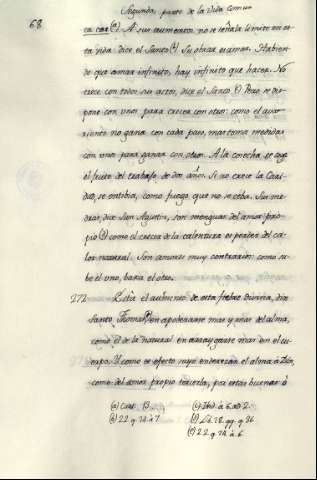 68
Segunda parte de la Vida comun
ca cor (a) A sus aumentos no se señala limite en es
ta vida, dice el Santo (b) Su obrar es amar. Habien
do que amar infinito, hay infinito que hacer. No
crece con todos sus actos, dice el Santo (c) Pero se dis
pone con unos para crecer con otros: como el cami
nante no gana con cada paso, mas toma medidas
con uno para ganar con otro. A la cosecha se coge
el fruto del trabajo de dos años. Si no crece la Cari
dad, se entibia, como fuego que no se ceba. Sus me
dras, dice San Agustin, son menguas del amor pro
pio (d) como el crecer de la calentura es perder del ca
lor natural. Son amores muy contrarios: como su
be el uno, baxa el otro.
272 Está el aumento de esta fiebre Divina, dice
Santo Thomas, (e) en apoderarse mas y mas del alma,
como el de la natural en arraygarse mas en el cu
erpo. Y como es efecto suyo enderezar el alma á Dios,
como del amor propio torcerla, por estas buenas ó
(a) Cant. 13.
(b) 22 q. 24. á 7.
(c) Ibid. á 6. ad 2.
(d) Li. 18. qq. q. 36
(e) 22 q. 24. á. 6.